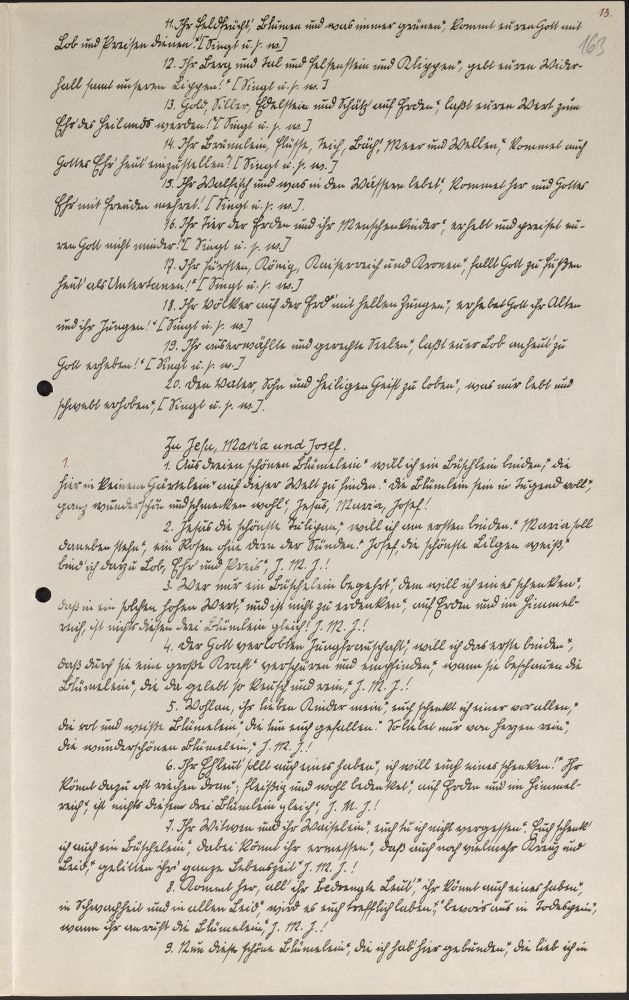 13.
163
11. Ihr Feldfrücht, Blumen und was immer grünen", kommt euren Gott mit
Lob und Preisen dienen!" [Singt u. s. w.]
12. Ihr Berg und Tal und Felsenstein und Klippen", gebt euren Wider-
hall samt unseren Lippen!" [Singt u. s. w.]
13. Gold, Silber, Edelstein und Schätz auf Erden", laßt euren Wert zum
Ehr des Heilands werden!" [Singt u. s. w.]
14. Ihr Brünnlein, Flüsse, Teich, Bäch, Meer und Wellen," kommet auch
Gottes Ehr heut einzustellen! [Singt u. s. w.]
15. Ihr Walfisch und was in den Wässern lebet", kommet her und Gottes
Ehr mit Freuden mehret! [Singt u. s. w.].
16. Ihr Tier der Erden und ihr Menschenkinder", erhebt und preiset eu-
ren Gott nicht minder!" [Singt u. s. w.]
17. Ihr Fürsten, König, Kaiserreich und Kronen", fallt Gott zu Füßen
heut als Untertanen!" [Singt u. s. w.]
18. Ihr Völker auf der Erd' mit hellen Zungen", erhebet Gott ihr Alten
und ihr Jungen!" [Singt u. s. w.]
19. Ihr auserwählte und gerechte Seelen", laßt euer Lob anheut' zu
Gott erheben!" [Singt u. s. w.]
20. Den Vater, Sohn und Heiligen Geist zu loben", was nur lebt und
schwebt erhoben", [Singt u. s. w.].
Zu Jesu, Maria und Josef.
1.
1. Aus dreien schönen Blümelein" will ich ein Büschlein binden," die
hier in keinem Gärtelein" auf dieser Welt zu finden." Die Blümlein sein in Tugend voll",
ganz wunderschön und schmecken wohl", Jesus, Maria, Josef!
2. Jesus die schönste Tulipan," will ich am ersten binden." Maria soll
daneben stehn", ein Rosen ohne Dorn der Sünden." Josef, die schönste Lilgen weiß,"
bind' ich dazu Lob, Ehr und Preis", J. M. J.!
3. Wer nur ein Büschelein begehrt", dem will ich eines schenken",
daß in ein solchen hohen Wert," und ist nicht zu erdenken", auf Erden und im Himmel-
reich, ist nichts diesen drei Blümlein gleich! J. M. J.!
4. Der Gott verlobten Jungfrauschaft," will ich das erste binden",
daß durch sie eine große Kraft" verspüren und empfinden," wann sie beschauen die
Blümelein", die da gelebt so keusch und rein", J. M. J.!
5. Wohlan, ihr lieben Kinder mein", euch schenkt ich einer vor allen,"
die rot und weiße Blümelein" die tun euch gefallen." So liebet nur von Herzen rein",
die wunderschönen Blümelein," J. M. J.!
6. Ihr Ehleut' sollt auch eines haben", ich will euch eines schenken!" Ihr
könnt dazu oft riechen dran"; fleißig und wohl bedenket", auf Erden und im Himmel-
reich", ist nichts diesem drei Blümlein gleich", J. M. J.!
7. Ihr Witwen und ihr Waiselein", euch tu ich nicht vergessen". Euch schenk'
ich auch ein Büschelein", dabei könnt ihr ermessen", daß auch noch vielmehr Kreuz und
Leid," gelitten ihr' ganze Lebenszeit" J. M. J.!
8. Kommt her, all' ihr bedrengte Leut'," ihr könnt auch eines haben",
in Schwachheit und in allen Leid" wird es euch trefflich laben", bevoraus in Todespein",
wann ihr anruft die Blümelein", J. M. J.!
9. Nun diese schöne Blümelein", die ich hab' hier gebunden," die lieb ich in